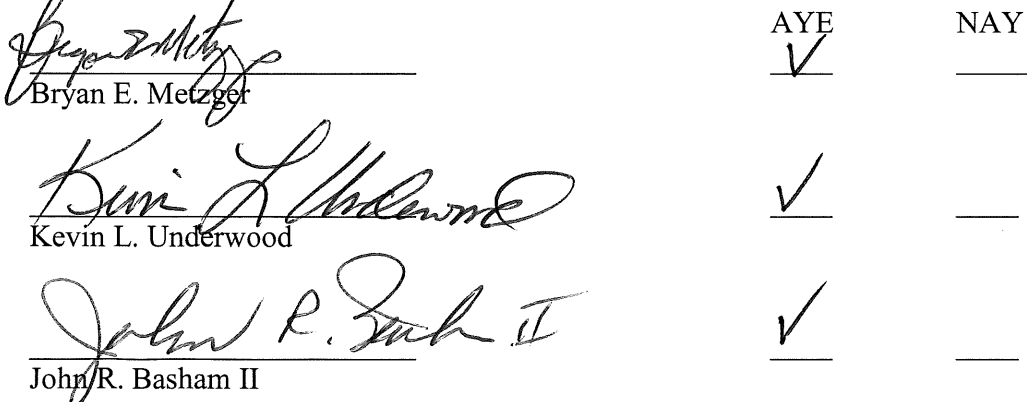 AYE NAY
Bryan E Metzger ✓
Bryan E. Metzger
Kevin L Underwood ✓
Kevin L. Underwood
John R. Bash II ✓
John R. Basham II